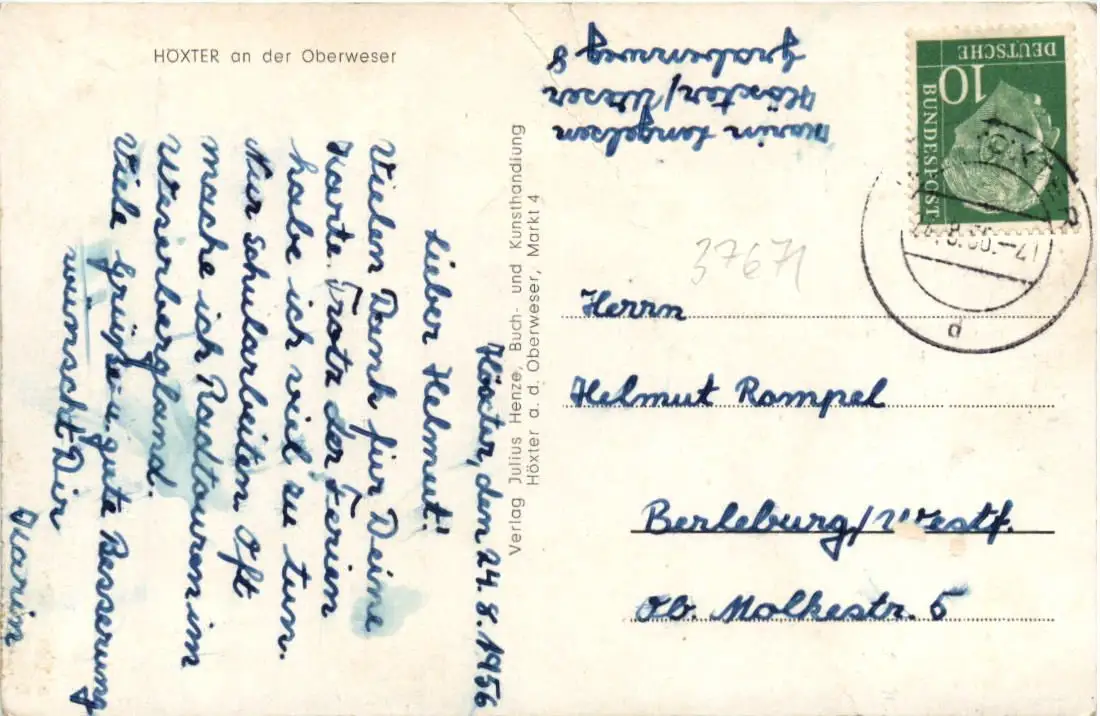 HÖXTER an der Oberweser
Höxter, den 24.8.1956
Lieber Helmut!
Vielen Dank für Deine
Karte. Trotz der Ferien
habe ich viel zu tun.
Nur Schularbeiten. Oft
mache ich Radtouren im
Weserbergland.
Viele Grüße u. gute Besserung
wünscht Dir
Verlag Julius Henze, Buch- und Kunsthandlung
Höxter a. d. Oberweser, Markt 4
Höxter/Weser
Grabenweg 8
DEUTSCHE
BUNDESPOST
10
d
37671
Herrn
Helmut Rompel
Berleburg/Westf.
Ob. Molkestr. 5